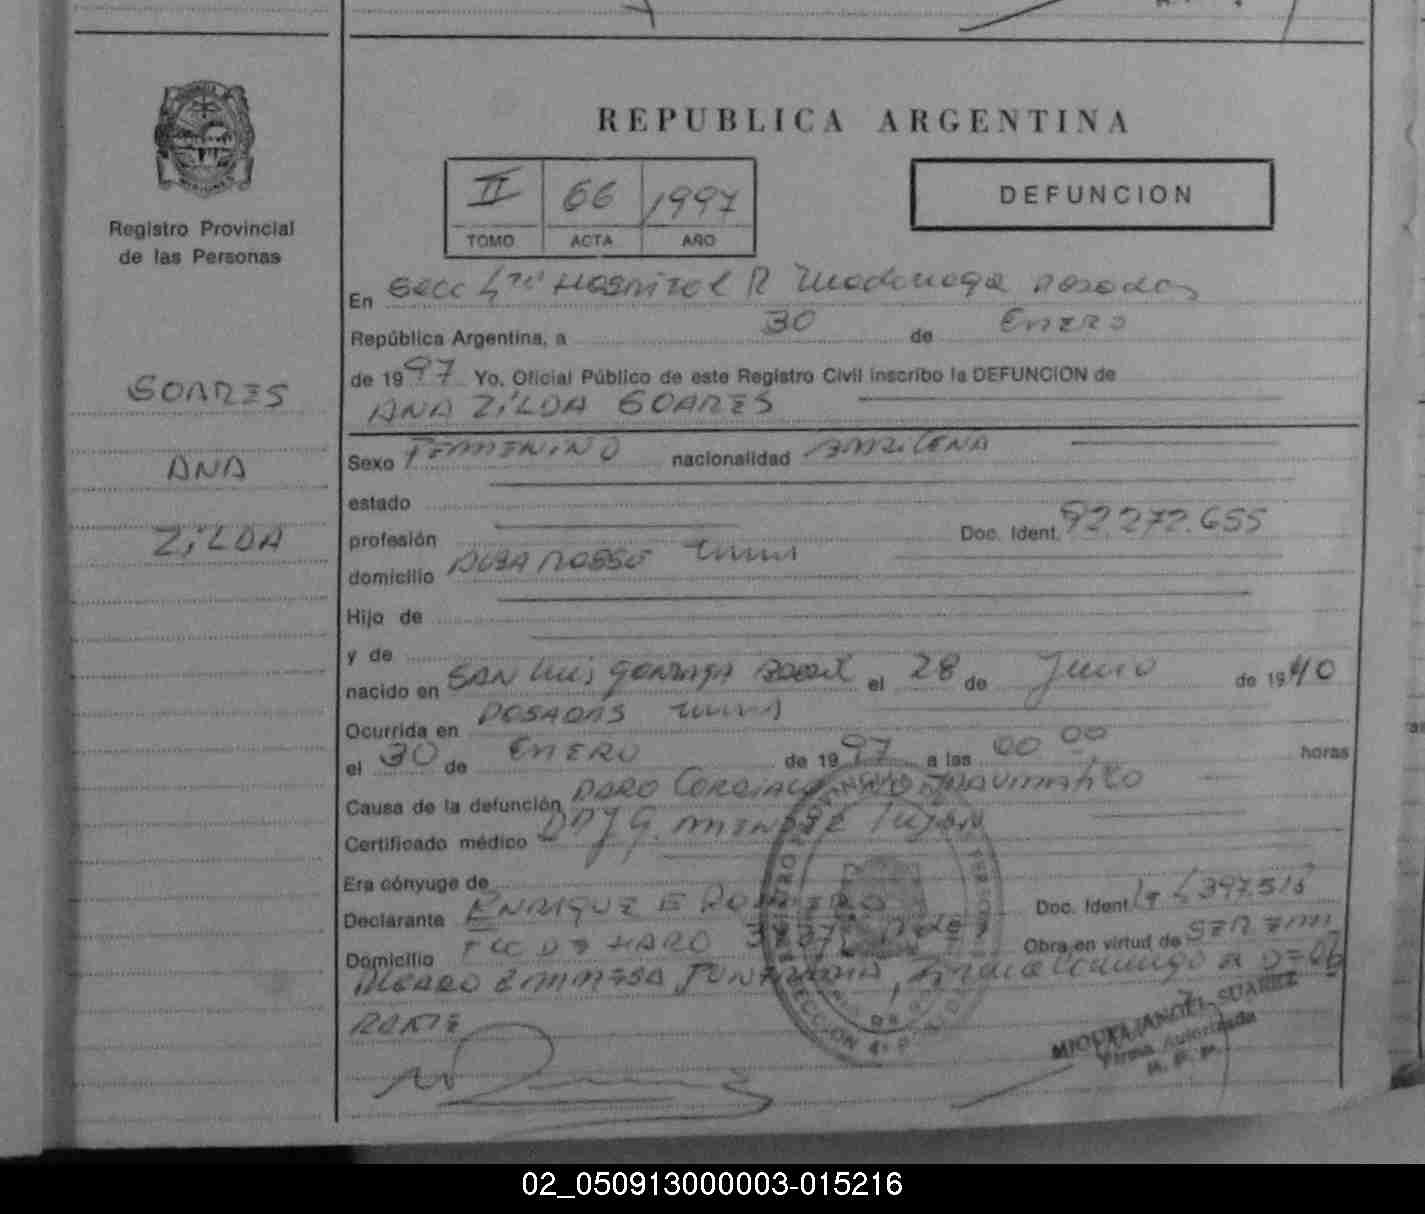 REPUBLICA ARGENTINA
II 66 1997
TOMO ACTA AÑO
DEFUNCION
Registro Provincial
de las Personas
SOARES
ANA
ZILDA
En Secc 4ta Hospital R Madariaga Posadas
República Argentina, a 30 de Enero
de 1997 Yo, Oficial Público de este Registro Civil inscribo la DEFUNCION de
ANA ZILDA SOARES
Sexo FEMENINO nacionalidad
estado
profesión Doc. Ident. 92.272.655
domicilio
Hijo de
y de
nacido en SAN Luis GONZAGA Brasil el 28 de Junio de 1940
Ocurrida en POSADAS
el 30 de ENERO de 1997 a las 00 00 horas
Causa de la defunción PARO Cardiaco NO TRAUMATICO
Certificado médico
Era cónyuge de
Declarante ENRIQUE E ROMERO Doc. Ident.
Domicilio DE HARO Obra en virtud de SER EMP
EMPRESA FUNERARIA,
PARTE
SECCION 4a
MIGUEL ANGEL SUAREZ
Firma Autorizada
R. P. P.
02_050913000003-015216